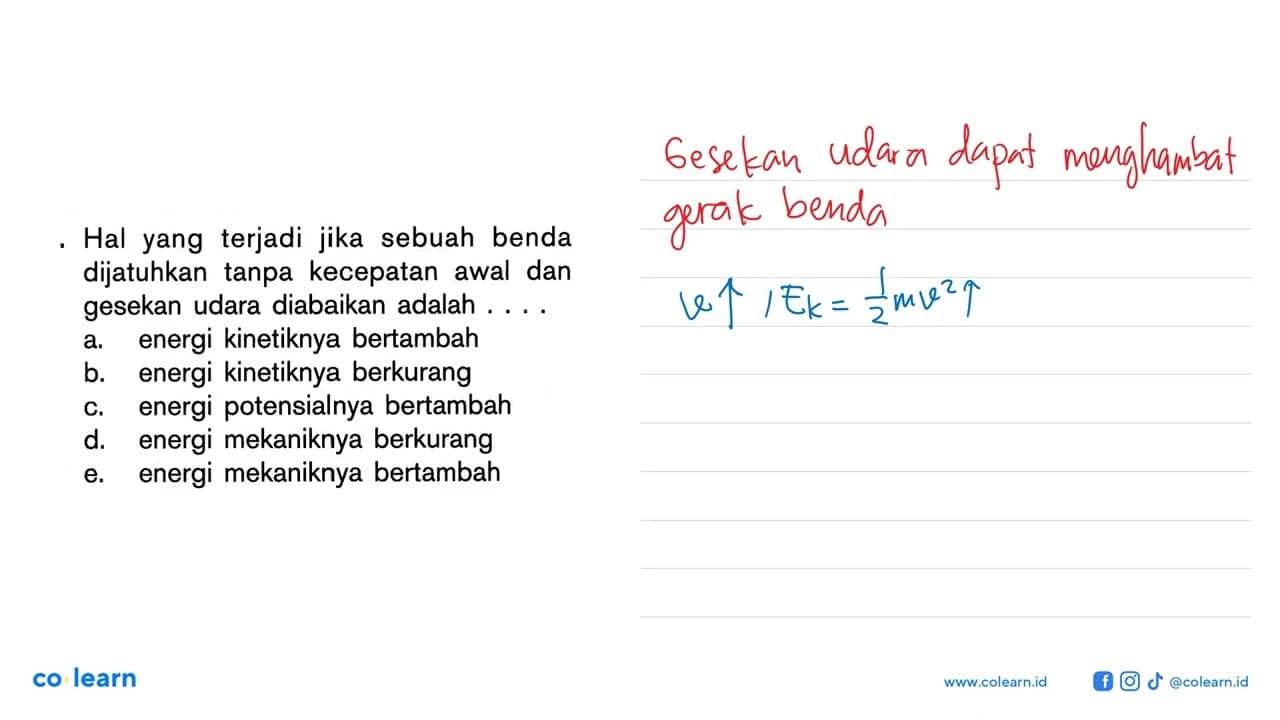 . Hal yang terjadi jika sebuah benda
dijatuhkan tanpa kecepatan awal dan
gesekan udara diabaikan adalah . . . .
a. energi kinetiknya bertambah
b. energi kinetiknya berkurang
c. energi potensialnya bertambah
d. energi mekaniknya berkurang
e. energi mekaniknya bertambah
Gesekan udara dapat menghambat
gerak benda
v↑ / Ek = 1/2 mv²↑
co learn
www.colearn.id
@colearn.id